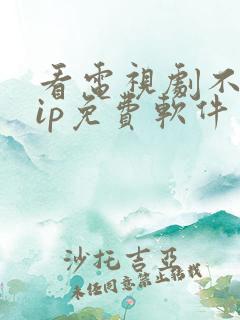 看電視劇不
ip免費軟件
沙托吉亞
未经同意禁止转载